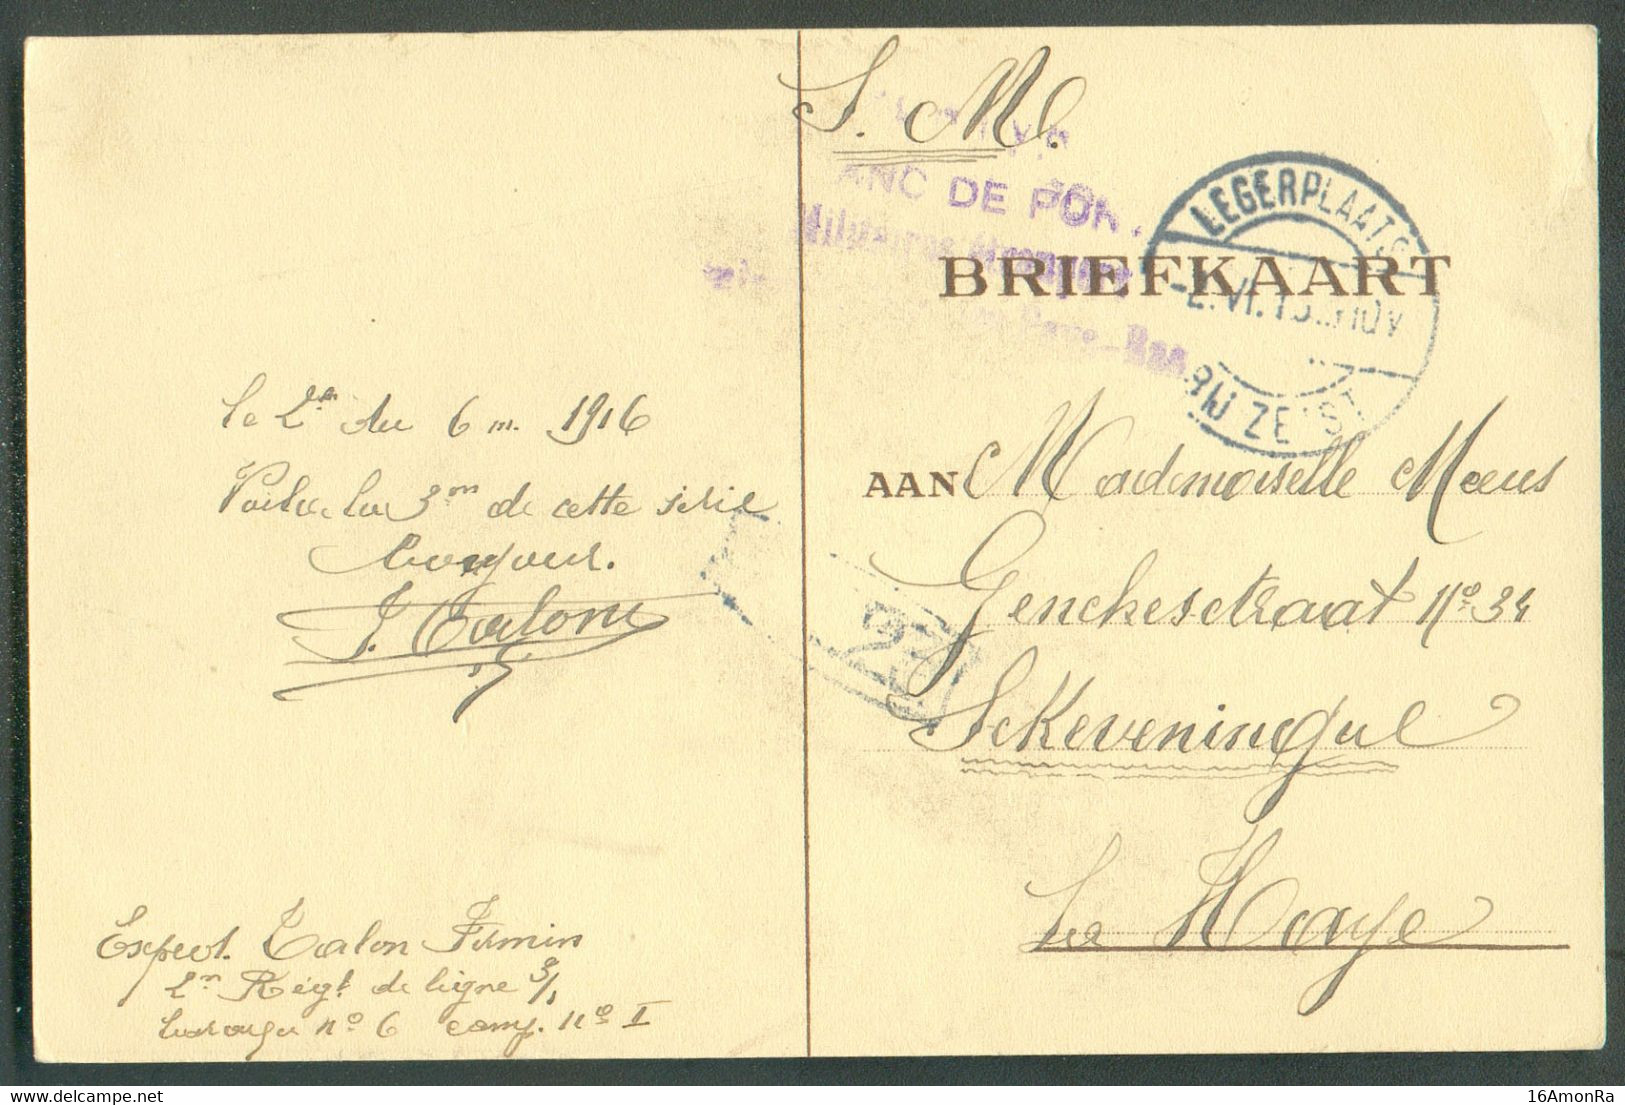 S. M.
FRANC DE PORT
Militaires étrangers
Pays-Bas
LEGERPLAATS
BIJ ZEIST
BRIEFKAART
le 2m du 6 m. 1916
Voila la 3m de cette série
Bonjour.
F. Talon
AAN Mademoiselle Meeus
Genckestraat No 34
Sckeveningue
La Haye
Exped. Talon Firmin
2m Régt de ligne 3/1
baraque no 6 camp. No I
delcampe.net
16AmonRa